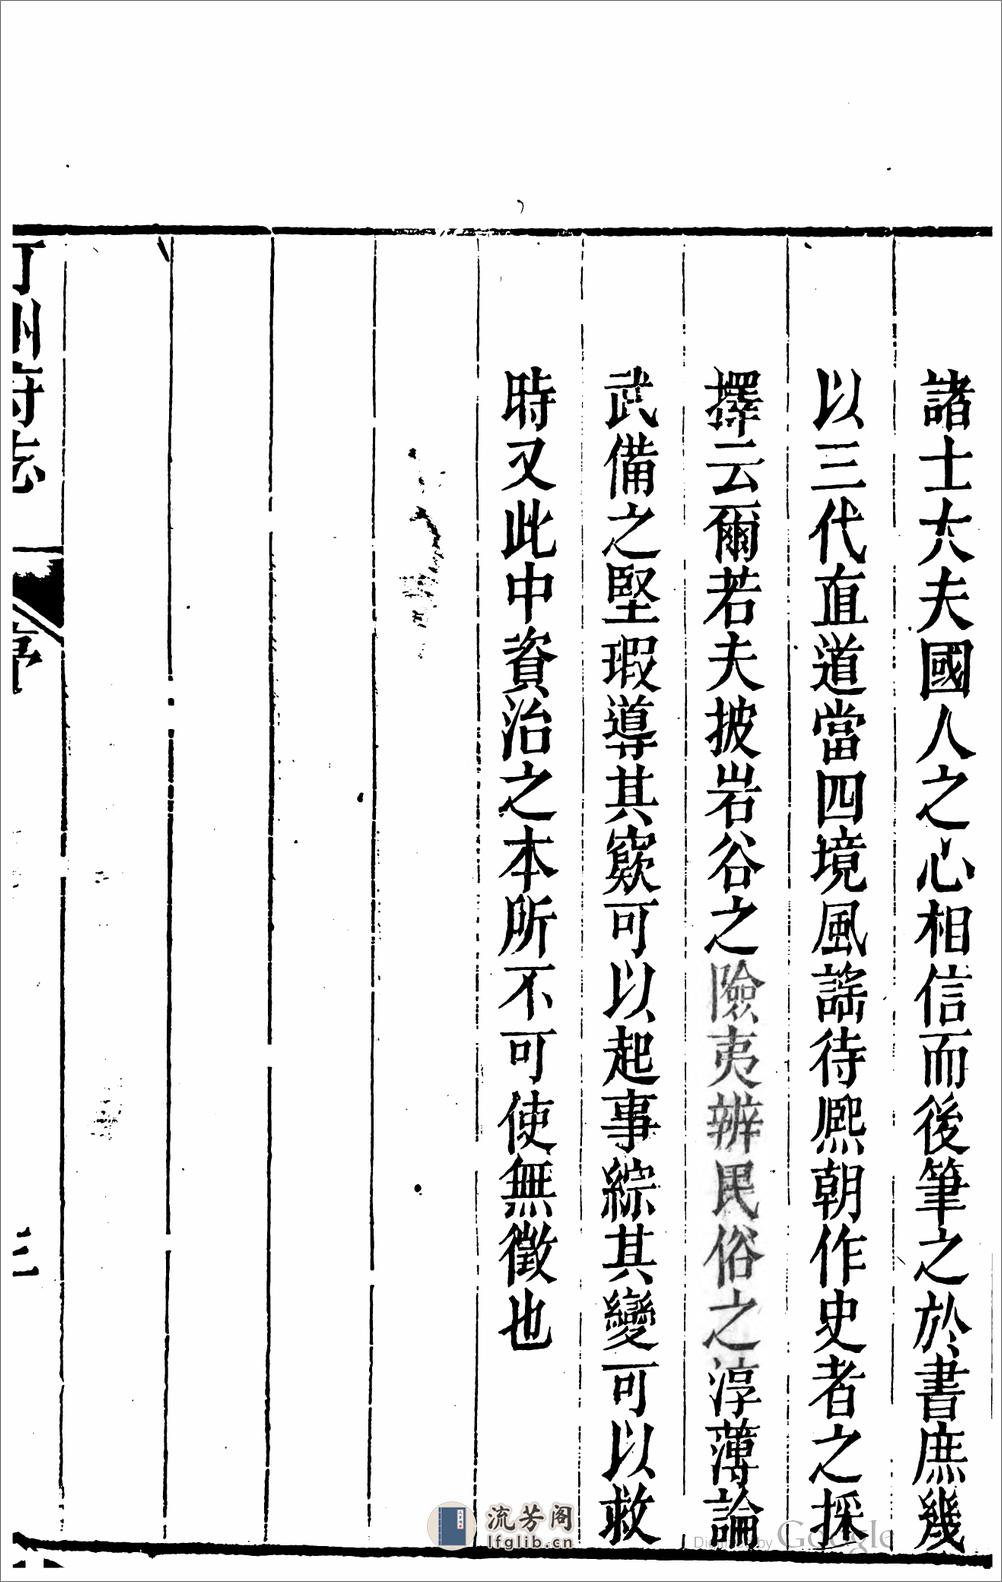 諸士大夫國人之心相信而後筆之於書庶幾
以三代直道當四境風謡待熈朝作史者之採
擇云爾若夫披岩谷之險夷辨民俗之淳薄論
武備之堅瑕導其窾可以起事綜其變可以救
時又此中資治之本所不可使無徵也
汀州府志 序 三
流芳阁
lfglib.cn
Digitized by Google